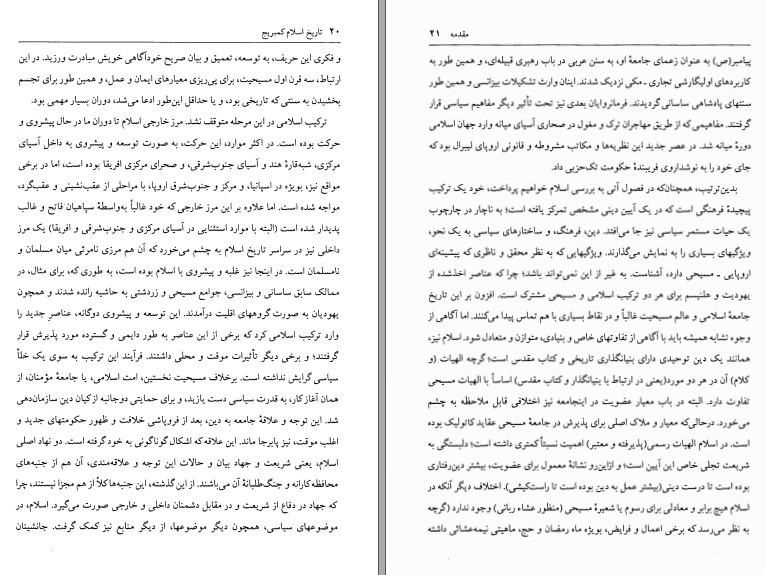 ۲۰ تاریخ اسلام کمبریج
و فکری این حریف، به توسعه، تعمیق و بیان صریح خودآگاهی خویش مبادرت ورزید. در این
ارتباط، سه قرن اول مسیحیت، برای پی‌ریزی معیارهای ایمان و عمل، و همین طور برای تجسم
بخشیدن به سنتی که تاریخی بود، و یا حداقل این‌طور ادعا می‌شد، دوران بسیار مهمی بود.
ترکیب اسلامی در این مرحله متوقف نشد. مرز خارجی اسلام تا دوران ما در حال پیشروی و
حرکت بوده است. در اکثر موارد، این حرکت، به صورت توسعه و پیشروی به داخل آسیای
مرکزی، شبه‌قارهٔ هند و آسیای جنوب‌شرقی، و صحرای مرکزی افریقا بوده است، اما در برخی
مواقع نیز، بویژه در اسپانیا، و مرکز و جنوب‌شرق اروپا، با مراحلی از عقب‌نشینی و عقب‌گرد،
مواجه شده است. اما علاوه بر این مرز خارجی که خود غالباً به‌واسطهٔ سپاهیان فاتح و غالب
پدیدار شده است (البته با موارد استثنایی در آسیای مرکزی و جنوب‌شرقی و افریقا) یک مرز
داخلی نیز در سراسر تاریخ اسلام به چشم می‌خورد که آن هم مرزی نامرئی میان مسلمان و
نامسلمان است. در اینجا نیز غلبه و پیشروی با اسلام بوده است، به طوری که، برای مثال، در
ممالک سابق ساسانی و بیزانسی، جوامع مسیحی و زردشتی به حاشیه رانده شدند و همچون
یهودیان به صورت گروههای اقلیت درآمدند. این توسعه و پیشروی دوگانه، عناصر جدید را
وارد ترکیب اسلامی کرد که برخی از این عناصر به طور دایمی و گسترده مورد پذیرش قرار
گرفتند؛ و برخی دیگر تأثیرات موقت و محلی داشتند. فرآیند این ترکیب به سوی یک خلأ
سیاسی گرایش نداشته است. برخلاف مسیحیت نخستین، امت اسلامی، یا جامعهٔ مؤمنان، از
همان آغاز کار، به قدرت سیاسی دست یازید، و برای حمایتی دوجانبه از کیان دین سازمان‌دهی
شد. این توجه و علاقهٔ جامعه به دین، بعد از فروپاشی خلافت و ظهور حکومتهای جدید و
اغلب موقت، نیز پابرجا ماند. این علاقه که اشکال گوناگونی به خود گرفته است. دو نهاد اصلی
اسلام، یعنی شریعت و جهاد بیان و حالات این توجه و علاقه‌مندی، آن هم از جنبه‌های
محافظه‌کارانه و جنگ‌طلبانهٔ آن می‌باشند. از این‌گذشته، این جنبه‌ها کلاً از هم مجزا نیستند، چرا
که جهاد در دفاع از شریعت و در مقابل دشمنان داخلی و خارجی صورت می‌گیرد. اسلام، در
موضوعهای سیاسی، همچون دیگر موضوعها، از دیگر منابع نیز کمک گرفت. جانشینان
مقدمه ۲۱
پیامبر(ص) به عنوان زعمای جامعهٔ او، به سنن عربی در باب رهبری قبیله‌ای، و همین طور به
کاربردهای اولیگارشی تجاری ـ مکی نزدیک شدند. اینان وارث تشکیلات بیزانسی و همین طور
سنتهای پادشاهی ساسانی گردیدند. فرمانروایان بعدی نیز تحت تأثیر دیگر مفاهیم سیاسی قرار
گرفتند. مفاهیمی که از طریق مهاجران ترک و مغول در صحاری آسیای میانه وارد جهان اسلامی
دورهٔ میانه شد. در عصر جدید این نظریه‌ها و مکاتب مشروطه و قانونی اروپای لیبرال بود که
جای خود را به نوشداروی فریبندهٔ حکومت تک‌حزبی داد.
بدین‌ترتیب، همچنان‌که در فصول آتی به بررسی اسلام خواهیم پرداخت، خود یک ترکیب
پیچیدهٔ فرهنگی است که در یک آیین دینی مشخص تمرکز یافته است؛ به ناچار در چارچوب
یک حیات مستمر سیاسی نیز جا می‌افتد. دین، فرهنگ، و ساختارهای سیاسی به یک نحو،
ویژگیهای بسیاری را به نمایش می‌گذارند. ویژگیهایی که به نظر محقق و ناظری که پیشینه‌ای
اروپایی ـ مسیحی دارد، آشناست. به غیر از این نمی‌تواند باشد؛ چرا که عناصر اخذشده از
یهودیت و هلنیسم برای هر دو ترکیب اسلامی و مسیحی مشترک است. افزون بر این تاریخ
جامعهٔ اسلامی و عالم مسیحیت غالباً و در نقاط بسیاری با هم تماس پیدا می‌کنند. اما آگاهی از
وجود تشابه همیشه باید با آگاهی از تفاوتهای خاص و بنیادی، متوازن و متعادل شود. اسلام نیز،
همانند یک دین توحیدی دارای بنیانگذاری تاریخی و کتاب مقدس است؛ گرچه الهیات (و
کلام) آن در هر دو مورد(یعنی در ارتباط با بنیانگذار و کتاب مقدس) اساساً با الهیات مسیحی
تفاوت دارد. البته در باب معیار عضویت در اینجامعه نیز اختلافی قابل ملاحظه به چشم
می‌خورد. درحالی‌که معیار و ملاک اصلی برای پذیرش در جامعهٔ مسیحی عقاید کاتولیک بوده
است. در اسلام الهیات رسمی(پذیرفته و معتبر) اهمیت نسبتاً کمتری داشته است؛ دلبستگی به
شریعت تجلی خاص این آیین است؛ و ازاین‌رو نشانهٔ معمول برای عضویت، بیشتر دین‌رفتاری
بوده است تا درست دینی(بیشتر عمل به دین بوده است تا راست‌کیشی). اختلاف دیگر آنکه در
اسلام هیچ برابر و معادلی برای رسوم یا شعیرهٔ مسیحی (منظور عشاء ربانی) وجود ندارد (گرچه
به نظر می‌رسد که برخی اعمال و فرایض، بویژه ماه رمضان و حج، ماهیتی نیمه‌عشائی داشته